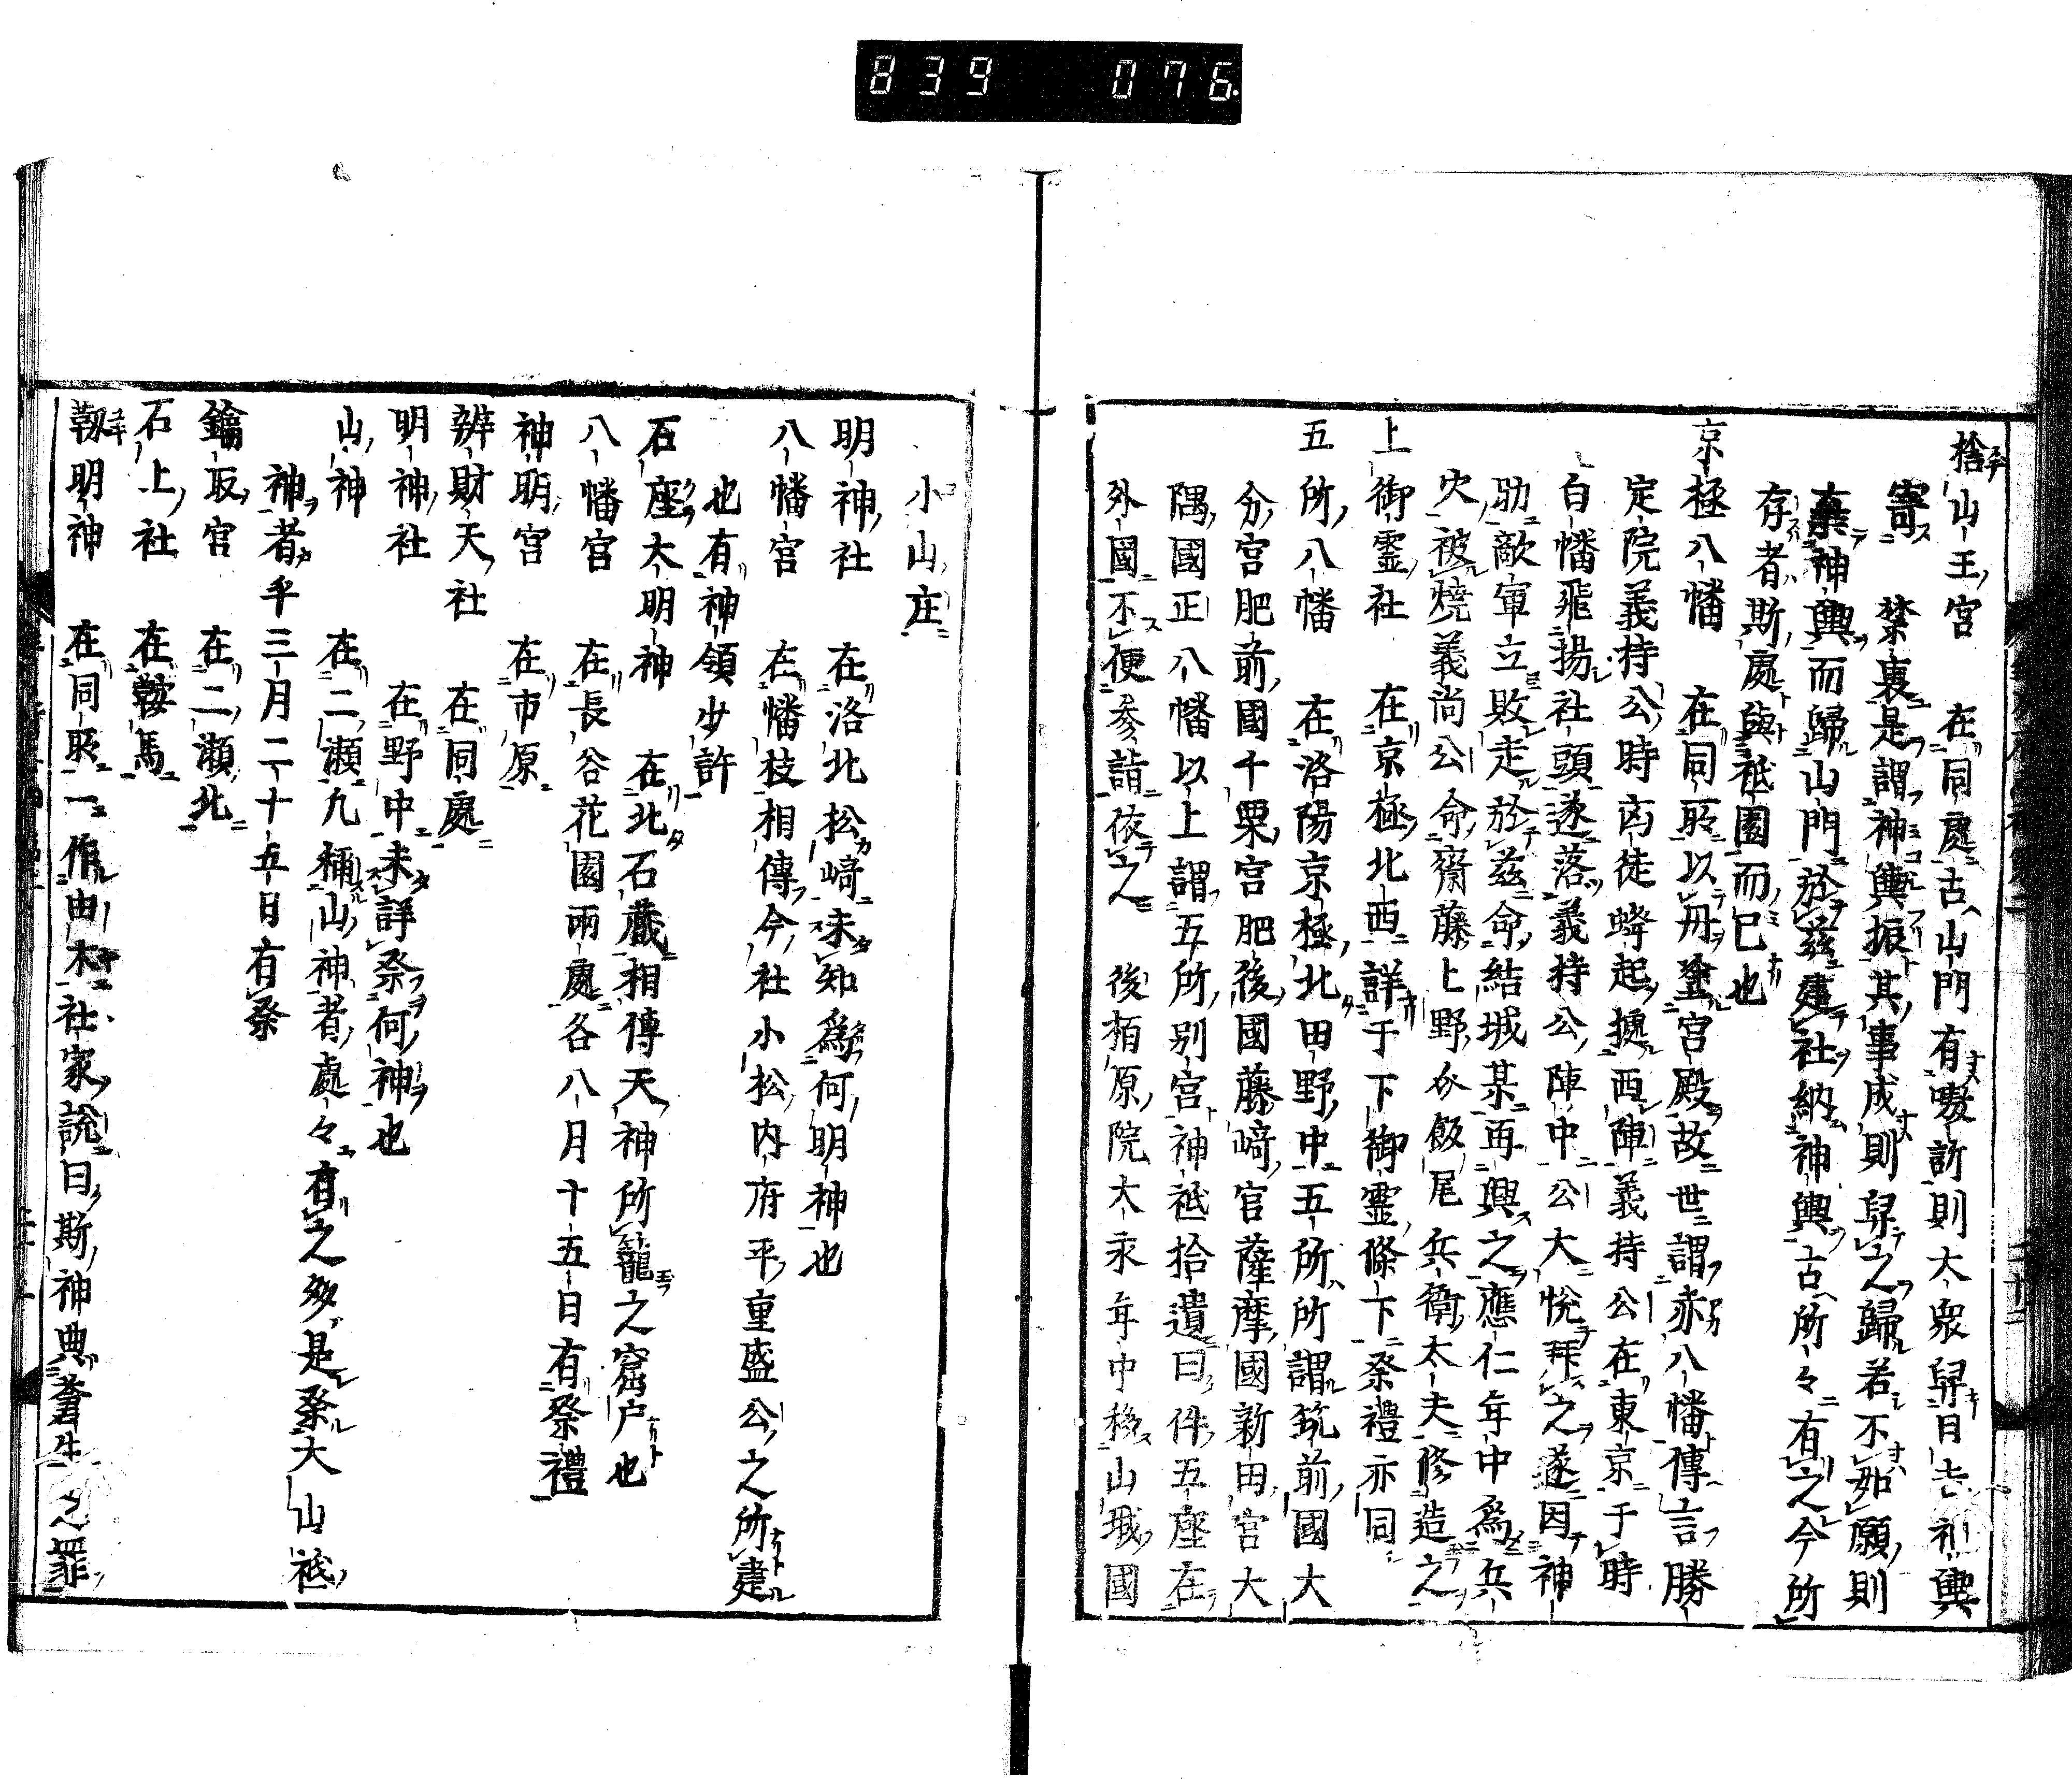 839 076.
捨山王宮 在同處古山門有嗷訴則大衆舁日吉神輿
寄 禁裏是謂神輿振其事成則舁之歸若不如願則
棄神輿而歸山門於茲建社納神輿古所々有之今所
存者斯處與祇園而已也
京極八幡 在同所以丹塗宮殿故世謂赤八幡傳言勝
定院義持公時凶徒蜂起據西陣義持公在東京于時
白幡飛揚社頭遂落義持公陣中公大悅拜之遂因神
助敵軍立敗走於茲命結城某再興之應仁年中為兵
火被燒義尚公命齋藤上野介飯尾兵衛太夫修造之
上御靈社 在京極北西詳于下御靈條下祭禮亦同
五所八幡 在洛陽京極北田野中五所所謂筑前國大
分宮肥前國千栗宮肥後國藤崎宮薩摩國新田宮大
隅國正八幡以上謂五所別宮神祇拾遺曰件五座在
外國不便參詣依之 後栢原院大永年中移山城國
小山庄
明神社 在洛北松崎未知為何明神也
八幡宮 在幡枝相傳今社小松內府平重盛公之所建
也有神領少許
石座大明神 在北石藏相傳天神所籠之窟戶也
八幡宮 在長谷花園兩處各八月十五日有祭禮
神明宮 在市原
辨財天社 在同處
明神社 在野中未詳祭何神也
山神 在二瀨九桶山神者處々有之多是祭大山祇
神者乎三月二十五日有祭
鑰取宮 在二瀨北
石上社 在鞍馬
靱明神 在同所一作由木社家說曰斯神典蒼生之罪